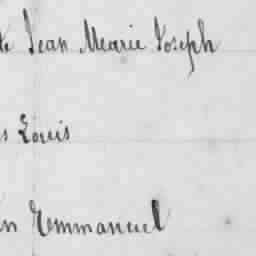 Jean Marie Joseph
Louis
Emmanuel